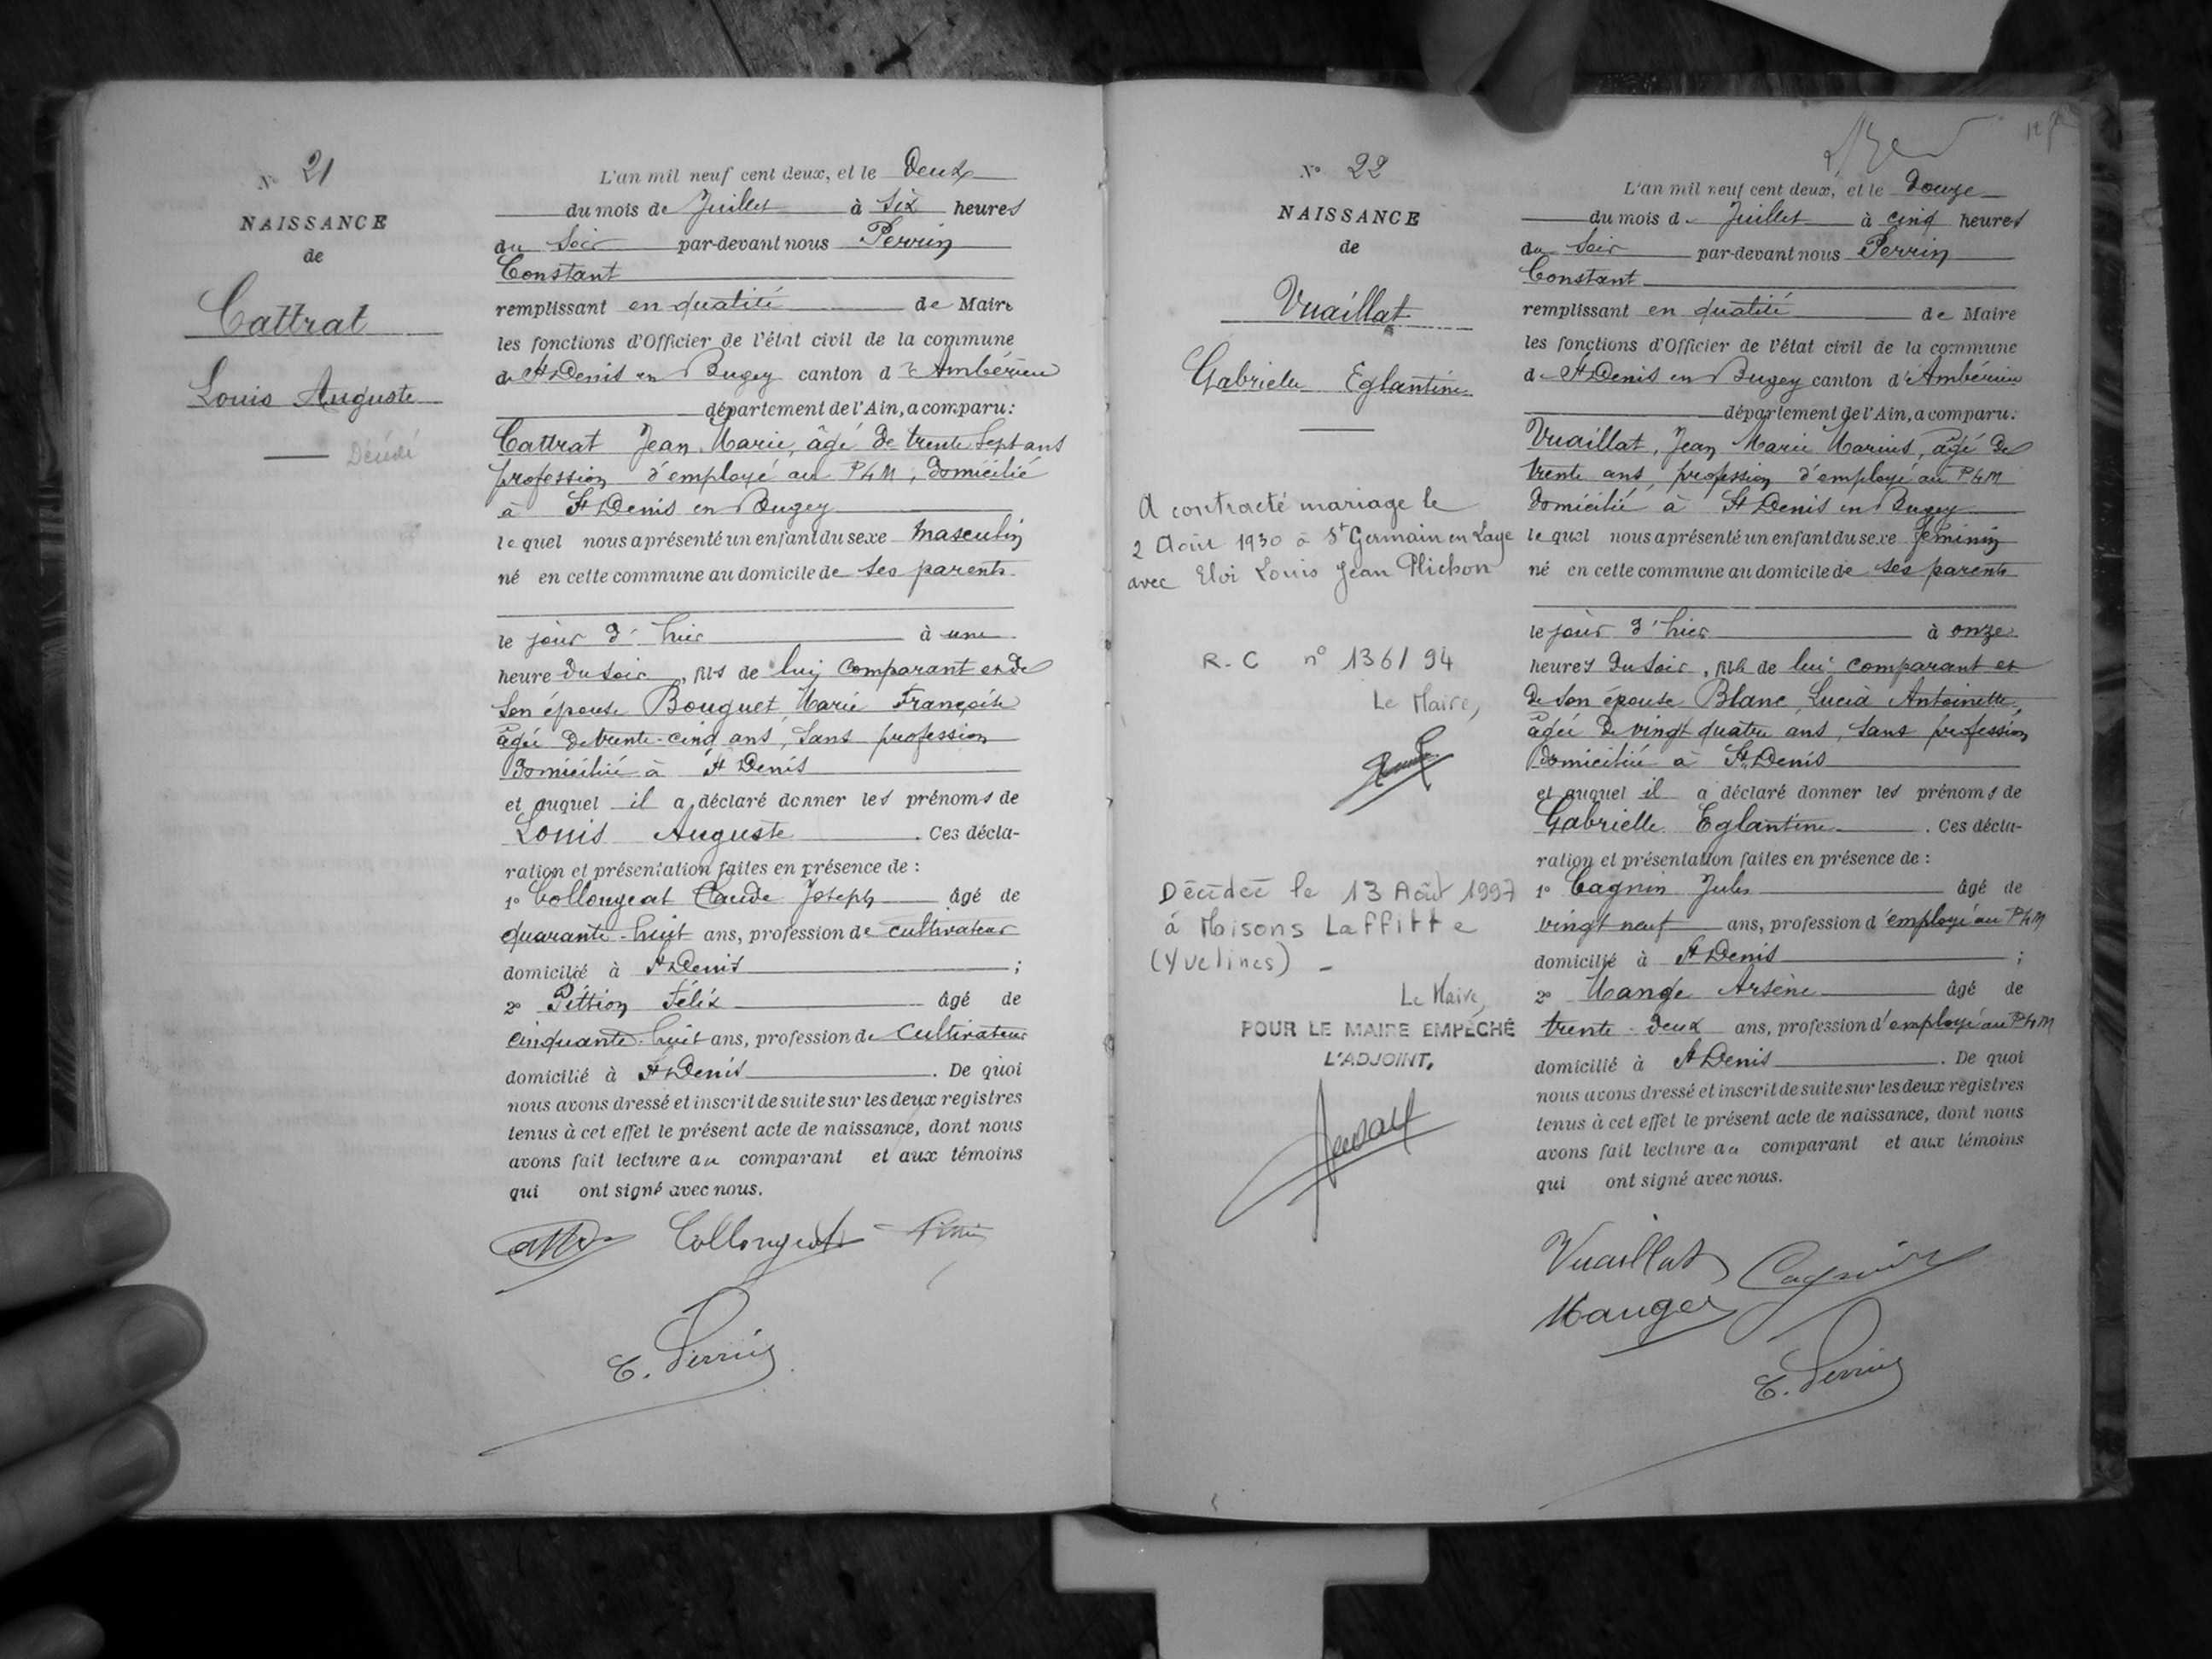 N° 21
NAISSANCE
de
Cattrat
Louis Auguste
Décédé
L'an mil neuf cent deux, et le Deux
du mois de Juillet à Six heures
du Soir par-devant nous Perrin
Constant
remplissant en qualité de Maire
les fonctions d'Officier de l'état civil de la commune
de St Denis en Bugey canton d'Ambérieu
département de l'Ain, a comparu:
Cattrat Jean Marie, âgé de trente sept ans
profession d'employé au PLM, domicilié
à St Denis en Bugey
lequel nous a présenté un enfant du sexe masculin
né en cette commune au domicile de ses parents
le jour d'hier à une
heure du soir, fils de lui comparant et de
son épouse Bouguet Marie Françoise
âgée de trente-cinq ans, sans profession
domiciliée à St Denis
et auquel il a déclaré donner les prénoms de
Louis Auguste. Ces décla-
ration et présentation faites en présence de :
1° Collongeat Claude Joseph âgé de
quarante-huit ans, profession de cultivateur
domicilié à St Denis ;
2° Pittion Félix âgé de
cinquante-huit ans, profession de Cultivateur
domicilié à St Denis. De quoi
nous avons dressé et inscrit de suite sur les deux registres
tenus à cet effet le présent acte de naissance, dont nous
avons fait lecture au comparant et aux témoins
qui ont signé avec nous.
Collongeat
C. Perrin
N° 22
NAISSANCE
de
Vuaillat
Gabrielle Eglantine
A contracté mariage le
2 Août 1930 à St Germain en Laye
avec Eloi Louis Jean Plichon
R.C n° 136/94
Le Maire,
Décédée le 13 Août 1997
à Maisons Laffitte
(Yvelines) -
Le Maire,
POUR LE MAIRE EMPÊCHÉ
L'ADJOINT,
L'an mil neuf cent deux, et le Douze
du mois de Juillet à cinq heures
du Soir par-devant nous Perrin
Constant
remplissant en qualité de Maire
les fonctions d'Officier de l'état civil de la commune
de St Denis en Bugey canton d'Ambérieu
département de l'Ain, a comparu:
Vuaillat, Jean Marie Marius, âgé de
trente ans, profession d'employé au PLM
domicilié à St Denis en Bugey
lequel nous a présenté un enfant du sexe féminin
né en cette commune au domicile de ses parents
le jour d'hier à onze
heures du soir, fille de lui comparant et
de son épouse Blanc, Lucia Antoinette,
âgée de vingt quatre ans, sans profession
domiciliée à St Denis
et auquel il a déclaré donner les prénoms de
Gabrielle Eglantine. Ces décla-
ration et présentation faites en présence de :
1° Cagnin Jules âgé de
vingt neuf ans, profession d'employé au PLM
domicilié à St Denis ;
2° Mange Arsène âgé de
trente-deux ans, profession d'employé au PLM
domicilié à St Denis. De quoi
nous avons dressé et inscrit de suite sur les deux registres
tenus à cet effet le présent acte de naissance, dont nous
avons fait lecture au comparant et aux témoins
qui ont signé avec nous.
Vuaillat Cagnin
Mange
C. Perrin